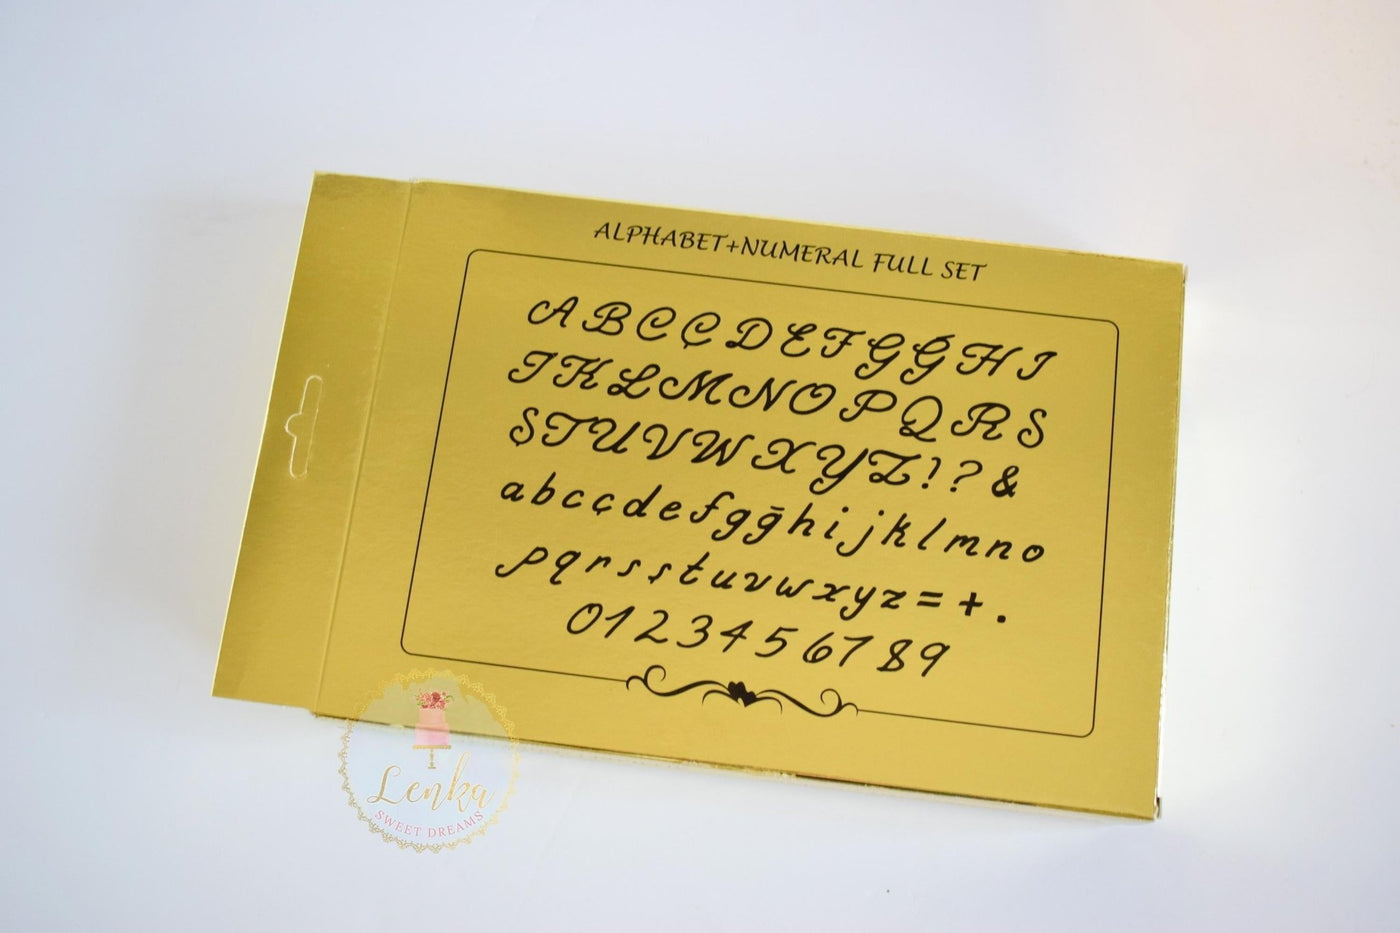 ALPHABET+NUMERAL FULL SET
A B C Ç D E F G Ğ H I
J K L M N O P Q R S
Ş T U V W X Y Z ! ? &
a b c ç d e f g ğ h i j k l m n o
p q r s ş t u v w x y z = + .
0 1 2 3 4 5 6 7 8 9
Lenka
SWEET DREAMS